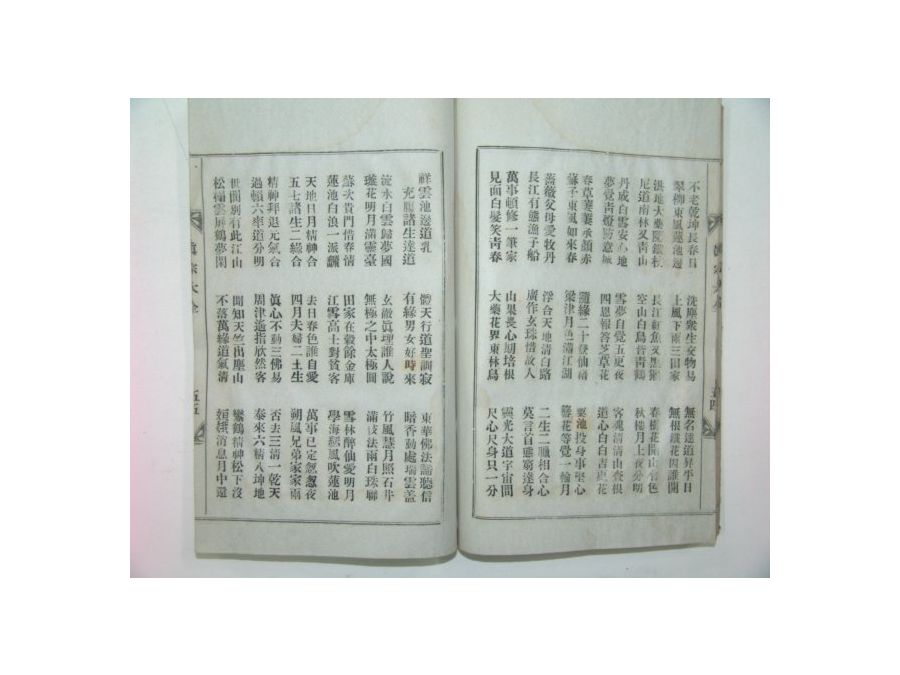 不老乾坤長春日 洗塵衆生交物易 無名達道昇平日
翠柳東風蓮池邊 上風下雨三田家 無根鐵花因誰開
洪地大藥院鐵 長江紅魚文黑 春花開山有色
尼道南林又靑山 空山白鳥昔靑鶴 秋樓月上夜分明
丹成白雪安心地 雪夢自覺五更夜 客魂清清山査根
夢覺靑燈防意 四恩報答芝草花 道心白白吉更花
春草萋萋承顔赤 隨緣二十登仙籍 粟池投身事堅心
蘇子東風如來春 梁津月色滿江湖 簪花等覺一輪月
薔薇父母愛牧丹 浮合天地清白路 二生二順相合心
長江有態漁子船 廣作玄珠惜故人 莫言百態窮達身
萬事頓修一筆家 山果畏心培根 靈光大道宇宙間
見面白髮笑靑春 大藥花界東林鳥 尺心尺身只一分
五四
祥雲池邊道乳 體天行道聖訓寂 東華佛法諸聽信
充腹諸生達道 有緣男女好時來 暗香動處瑞雲蓋
流水白雲歸夢國 玄微眞理誰人說 竹風慧月照石牛
璇花明月滿靈臺 無極之中太極圖 滿鼓法兩白珠聯
蘇次貴門惜春情 田家在穀餘金庫 雪林醉仙愛明月
蓮池白浪一派飜 江雪高士對貧客 學海慈風吹蓮池
天地日月精神合 去日春色誰自愛 萬事已定怱怱夜
五七諸生二緣合 四月夫婦二土生 朔風兄弟家家雨
精神拜退元氣合 眞心不動三佛易 否去三清一乾天
過頓六率道分明 周津遙指欣然客 泰來六精八坤地
世間別有此江山 聞知天竺出塵山 鸞鶴精神松下沒
松檐雲屏鶴夢閑 不落萬緣道氣清 姮娥消息月中遠
眞宗大全 五五